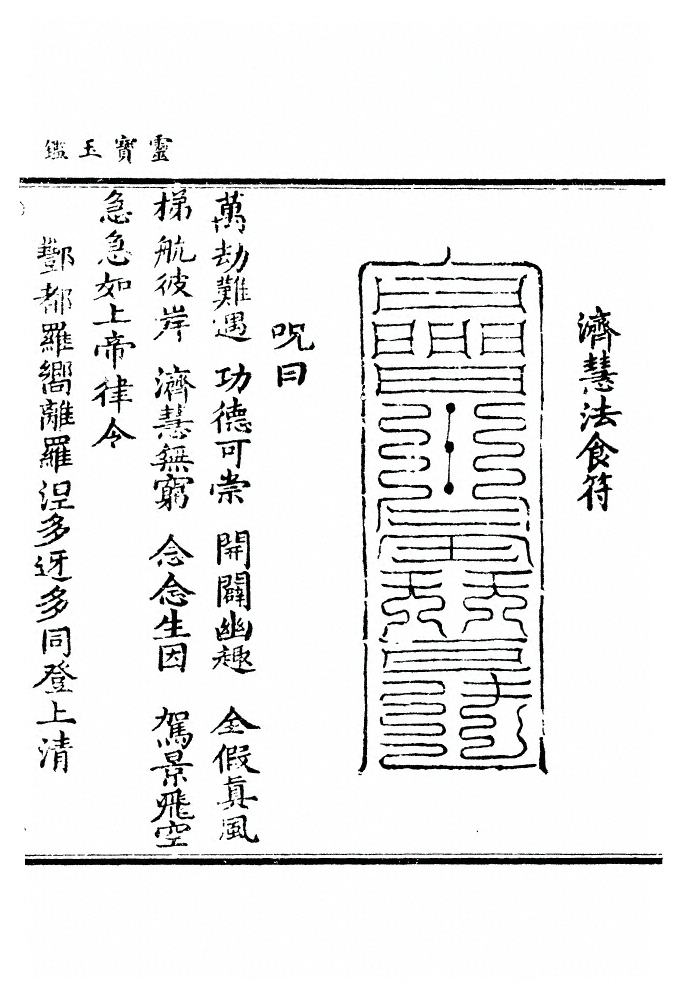 靈寶玉鑑
濟慧法食符
呪曰
萬劫難遇　功德可崇　開闢幽趣　全假真風
梯航彼岸　濟慧無窮　念念生因　駕景飛空
急急如上帝律令
酆都羅嚮離羅湼多迓多同登上清